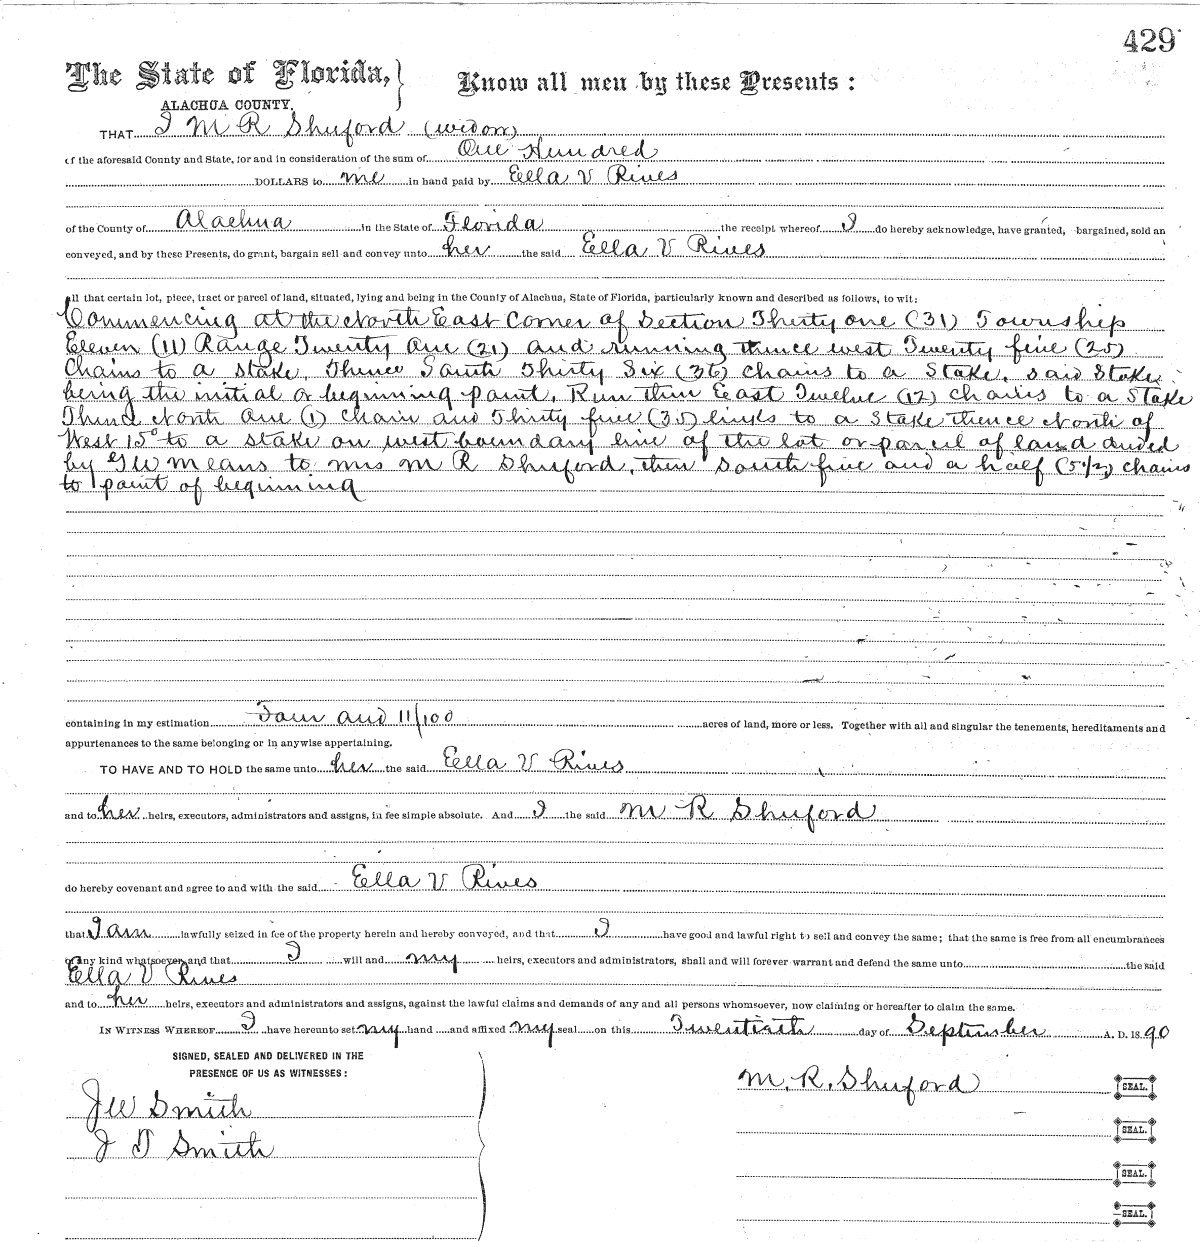 429
The State of Florida,
Know all men by these Presents:
ALACHUA COUNTY.
THAT I M R Shuford (widow)
of the aforesaid County and State, for and in consideration of the sum of One Hundred
DOLLARS to me in hand paid by Ella V Rives
of the County of Alachua in the State of Florida the receipt whereof I do hereby acknowledge, have granted, bargained, sold an
conveyed, and by these Presents, do grant, bargain sell and convey unto her the said Ella V Rives
all that certain lot, piece, tract or parcel of land, situated, lying and being in the County of Alachua, State of Florida, particularly known and described as follows, to wit:
Commencing at the North East Corner of Section Thirty one (31) Township
Eleven (11) Range Twenty One (21) and running thence west Twenty five (25)
Chains to a stake, Thence South Thirty Six (36) chains to a stake, said Stake
being the initial or beginning point, Run then East Twelve (12) chains to a Stake
Thence North One (1) chain and Thirty five (35) links to a stake thence North of
West 15° to a stake on west boundary line of the lot or parcel of land deeded
by G W Means to Mrs M R Shuford, then south five and a half (5 1/2) chains
to point of beginning
containing in my estimation Four and 11/100 acres of land, more or less. Together with all and singular the tenements, hereditaments and
appurtenances to the same belonging or in anywise appertaining.
TO HAVE AND TO HOLD the same unto her the said Ella V Rives
and to her heirs, executors, administrators and assigns, in fee simple absolute. And I the said M R Shuford
do hereby covenant and agree to and with the said Ella V Rives
that I am lawfully seized in fee of the property herein and hereby conveyed, and that I have good and lawful right to sell and convey the same; that the same is free from all encumbrances
of any kind whatsoever and that I will and my heirs, executors and administrators, shall and will forever warrant and defend the same unto the said
Ella V Rives
and to her heirs, executors and administrators and assigns, against the lawful claims and demands of any and all persons whomsoever, now claiming or hereafter to claim the same.
IN WITNESS WHEREOF I have hereunto set my hand and affixed my seal on this Twentieth day of September A. D. 1890
SIGNED, SEALED AND DELIVERED IN THE
PRESENCE OF US AS WITNESSES:
M. R. Shuford SEAL.
J W Smith
SEAL.
J D Smith
SEAL.
SEAL.